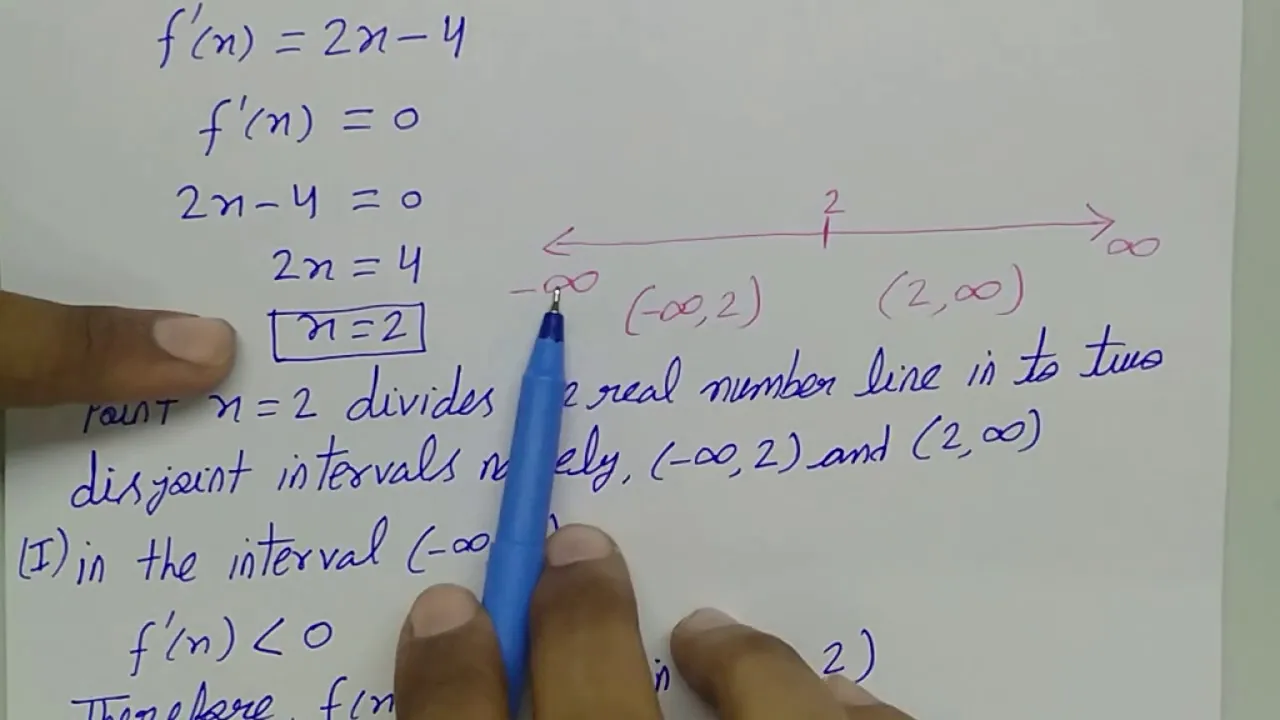 f'(x) = 2x - 4
f'(x) = 0
2x - 4 = 0
2x = 4
x = 2
2
-∞
∞
(-∞, 2)
(2, ∞)
point x = 2 divides real number line in to two
disjoint intervals, (-∞, 2) and (2, ∞)
(I) in the interval (-∞,
f'(x) < 0
Therefore, f(x in 2)